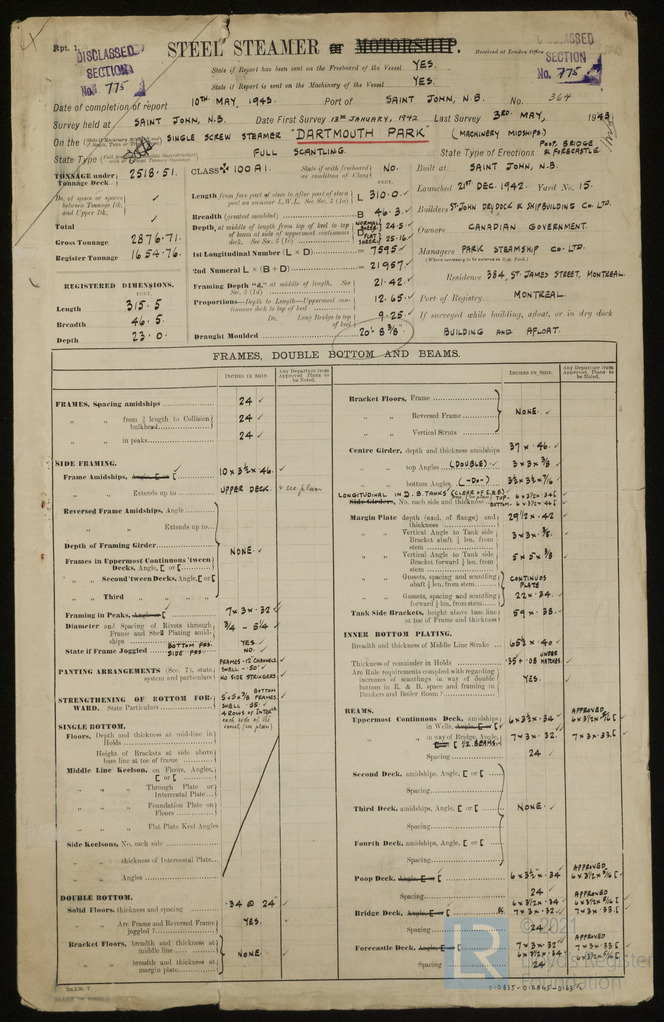 Rpt. 1.
DISCLASSED
SECTION
No. 775
STEEL STEAMER or MOTORSHIP.
Received at London Office
DISCLASSED
SECTION
No. 775
State if Report has been sent on the Freeboard of the Vessel YES.
State if Report is sent on the Machinery of the Vessel YES.
Date of completion of report 10TH MAY, 1943. Port of SAINT JOHN, N.B. No. 364
Survey held at SAINT JOHN, N.B. Date First Survey 13TH JANUARY, 1942 Last Survey 3RD. MAY, 1943.
On the SINGLE SCREW STEAMER "DARTMOUTH PARK" (MACHINERY MIDSHIPS)
State Type FULL SCANTLING. State Type of Erections POOP, BRIDGE & FORECASTLE
TONNAGE under Tonnage Deck 2518.51.
Do. of space or spaces between Tonnage Dk. and Upper Dk.
Total
Gross Tonnage 2876.71.
Register Tonnage 1654.76.
REGISTERED DIMENSIONS.
FEET.
Length 315.5
Breadth 46.5
Depth 23.0
CLASS 100 A1. State if with freeboard as condition of Class NO.
Length from fore part of stem to after part of stern post on summer L.W.L. See Sec. 3 (1a) L 310.0
Breadth (greatest moulded) B 46.3
Depth, at middle of length from top of keel to top of beam at side of uppermost continuous deck. See Sec. 3 (1c) D NORMAL SHEER 24.5
FLAT SHEER 25.16
1st Longitudinal Number (L × D) = 7595
2nd Numeral L × (B + D) = 21957
Framing Depth "d," at middle of length. See Sec. 3 (1d) 21.42
Proportions—Depth to Length—Uppermost continuous deck to top of keel 12.65
Do. Long Bridge to top of keel 9.25
Draught Moulded 20'- 8 3/8"
Built at SAINT JOHN, N.B.
Launched 21ST DEC. 1942. Yard No. 15.
Builders ST. JOHN DRY DOCK & SHIPBUILDING CO. LTD.
Owners CANADIAN GOVERNMENT.
Managers PARK STEAMSHIP CO. LTD.
Residence 384, ST. JAMES STREET, MONTREAL.
Port of Registry MONTREAL.
If surveyed while building, afloat, or in dry dock
BUILDING AND AFLOAT.
FRAMES, DOUBLE BOTTOM AND BEAMS.
INCHES IN SHIP.
Any Departure from Approved Plans to be Noted.
FRAMES, Spacing amidships 24
" " from 3/5 length to Collision bulkhead 24
" " in peaks 24
SIDE FRAMING.
Frame Amidships, Angle, [ or [ 10 × 3½ × .46
" " Extends up to UPPER DECK. * see plan
Reversed Frame Amidships, Angle
" " Extends up to
Depth of Framing Girder NONE.
Frames in Uppermost Continuous 'tween Decks, Angle, [ or [
" " Second 'tween Decks, Angle, [ or [
" " Third " " "
Framing in Peaks, Angle or [ 7 × 3 × .32
Diameter and Spacing of Rivets through Frame and Shell Plating amidships 3/4 - 5 1/4
State if Frame Joggled BOTTOM FRS. YES
SIDE FRS. NO.
PANTING ARRANGEMENTS (Sec. 7), state system and particulars FRAMES-12" CHANNELS
SHELL - .50"
NO SIDE STRINGERS
STRENGTHENING OF BOTTOM FORWARD. State Particulars 5×5×3/8 BOTTOM FRAMES
SHELL .55
4 ROWS OF INTER.
each side of the
SINGLE BOTTOM.
Floors, Depth and thickness at mid-line in Holds
Height of Brackets at side above base line at toe of frame
Middle Line Keelson, on Floors, Angles, [ or [
" " Through Plate or Intercostal Plate
" " Foundation Plate on Floors
" " Flat Plate Keel Angles
Side Keelsons, No. each side
" " thickness of Intercostal Plate
" " Angles
DOUBLE BOTTOM.
Solid Floors, thickness and spacing .34 @ 24"
" " Are Frame and Reversed Frame joggled? YES.
Bracket Floors, breadth and thickness at middle line NONE
" " breadth and thickness at margin plate
INCHES IN SHIP.
Any Departure from Approved Plans to be Noted.
Bracket Floors, Frame
" " Reversed Frame NONE.
" " Vertical Struts
Centre Girder, depth and thickness amidships 37 × .46.
" " top Angles (DOUBLE) 3 × 3 × 3/8
" " bottom Angles (-DO-) 3½ × 3½ × 7/16
LONGITUDINAL IN D.B. TANKS
Side Girders, No. each side and thickness TOP- 6 × 3½ × .34
BOTTOM- 6 × 3½ × .46
Margin Plate depth (excl. of flange) and thickness 29½ × .42
" " Vertical Angle to Tank side Bracket abaft ¼ len. from stem 3 × 3 × 3/8.
" " Vertical Angle to Tank side Bracket forward ¼ len. from stem 5 × 5 × 3/8
" " Gussets, spacing and scantling abaft ¼ len. from stem CONTINUOS PLATE
" " Gussets, spacing and scantling forward ¼ len. from stem 22 × .34.
Tank Side Brackets, height above base line at toe of Frame and thickness 59 × .38.
INNER BOTTOM PLATING.
Breadth and thickness of Middle Line Strake 65½ × .40
Thickness of remainder in Holds .35 + .08 UNDER HATCHES.
Are Rule requirements complied with regarding increases of scantlings in way of double bottom in E. & B. space and framing in Bunkers and Boiler Room? YES.
BEAMS.
Uppermost Continuous Deck, amidships in Wells, Angle, [ or [ 6 × 3½ × .34 APPROVED 6×3½×5/16 [
" " in way of Bridge, Angle, 7 × 3 × .32. 7 × 3 × .33 [
½ BEAMS
Spacing 24
Second Deck, amidships, Angle, [ or [
Spacing
Third Deck, amidships, Angle, [ or [ NONE.
Spacing
Fourth Deck, amidships, Angle, [ or [
Spacing
Poop Deck, Angle, [ or [ 6 × 3½ × .34 APPROVED 6×3½×5/16 [
Spacing 24
Bridge Deck, Angle, [ or [ 6 × 3½ × .34 APPROVED 6×3½×5/16 [
7 × 3 × .32 7 × 3 × .33 [
Spacing 24
Forecastle Deck, Angle, [ or [ 7 × 3 × .32 APPROVED 7 × 3 × .33 [
6 × 3½ × .34 6×3½×5/16 [
Spacing 24
© 2021
Lloyd's Register
Foundation